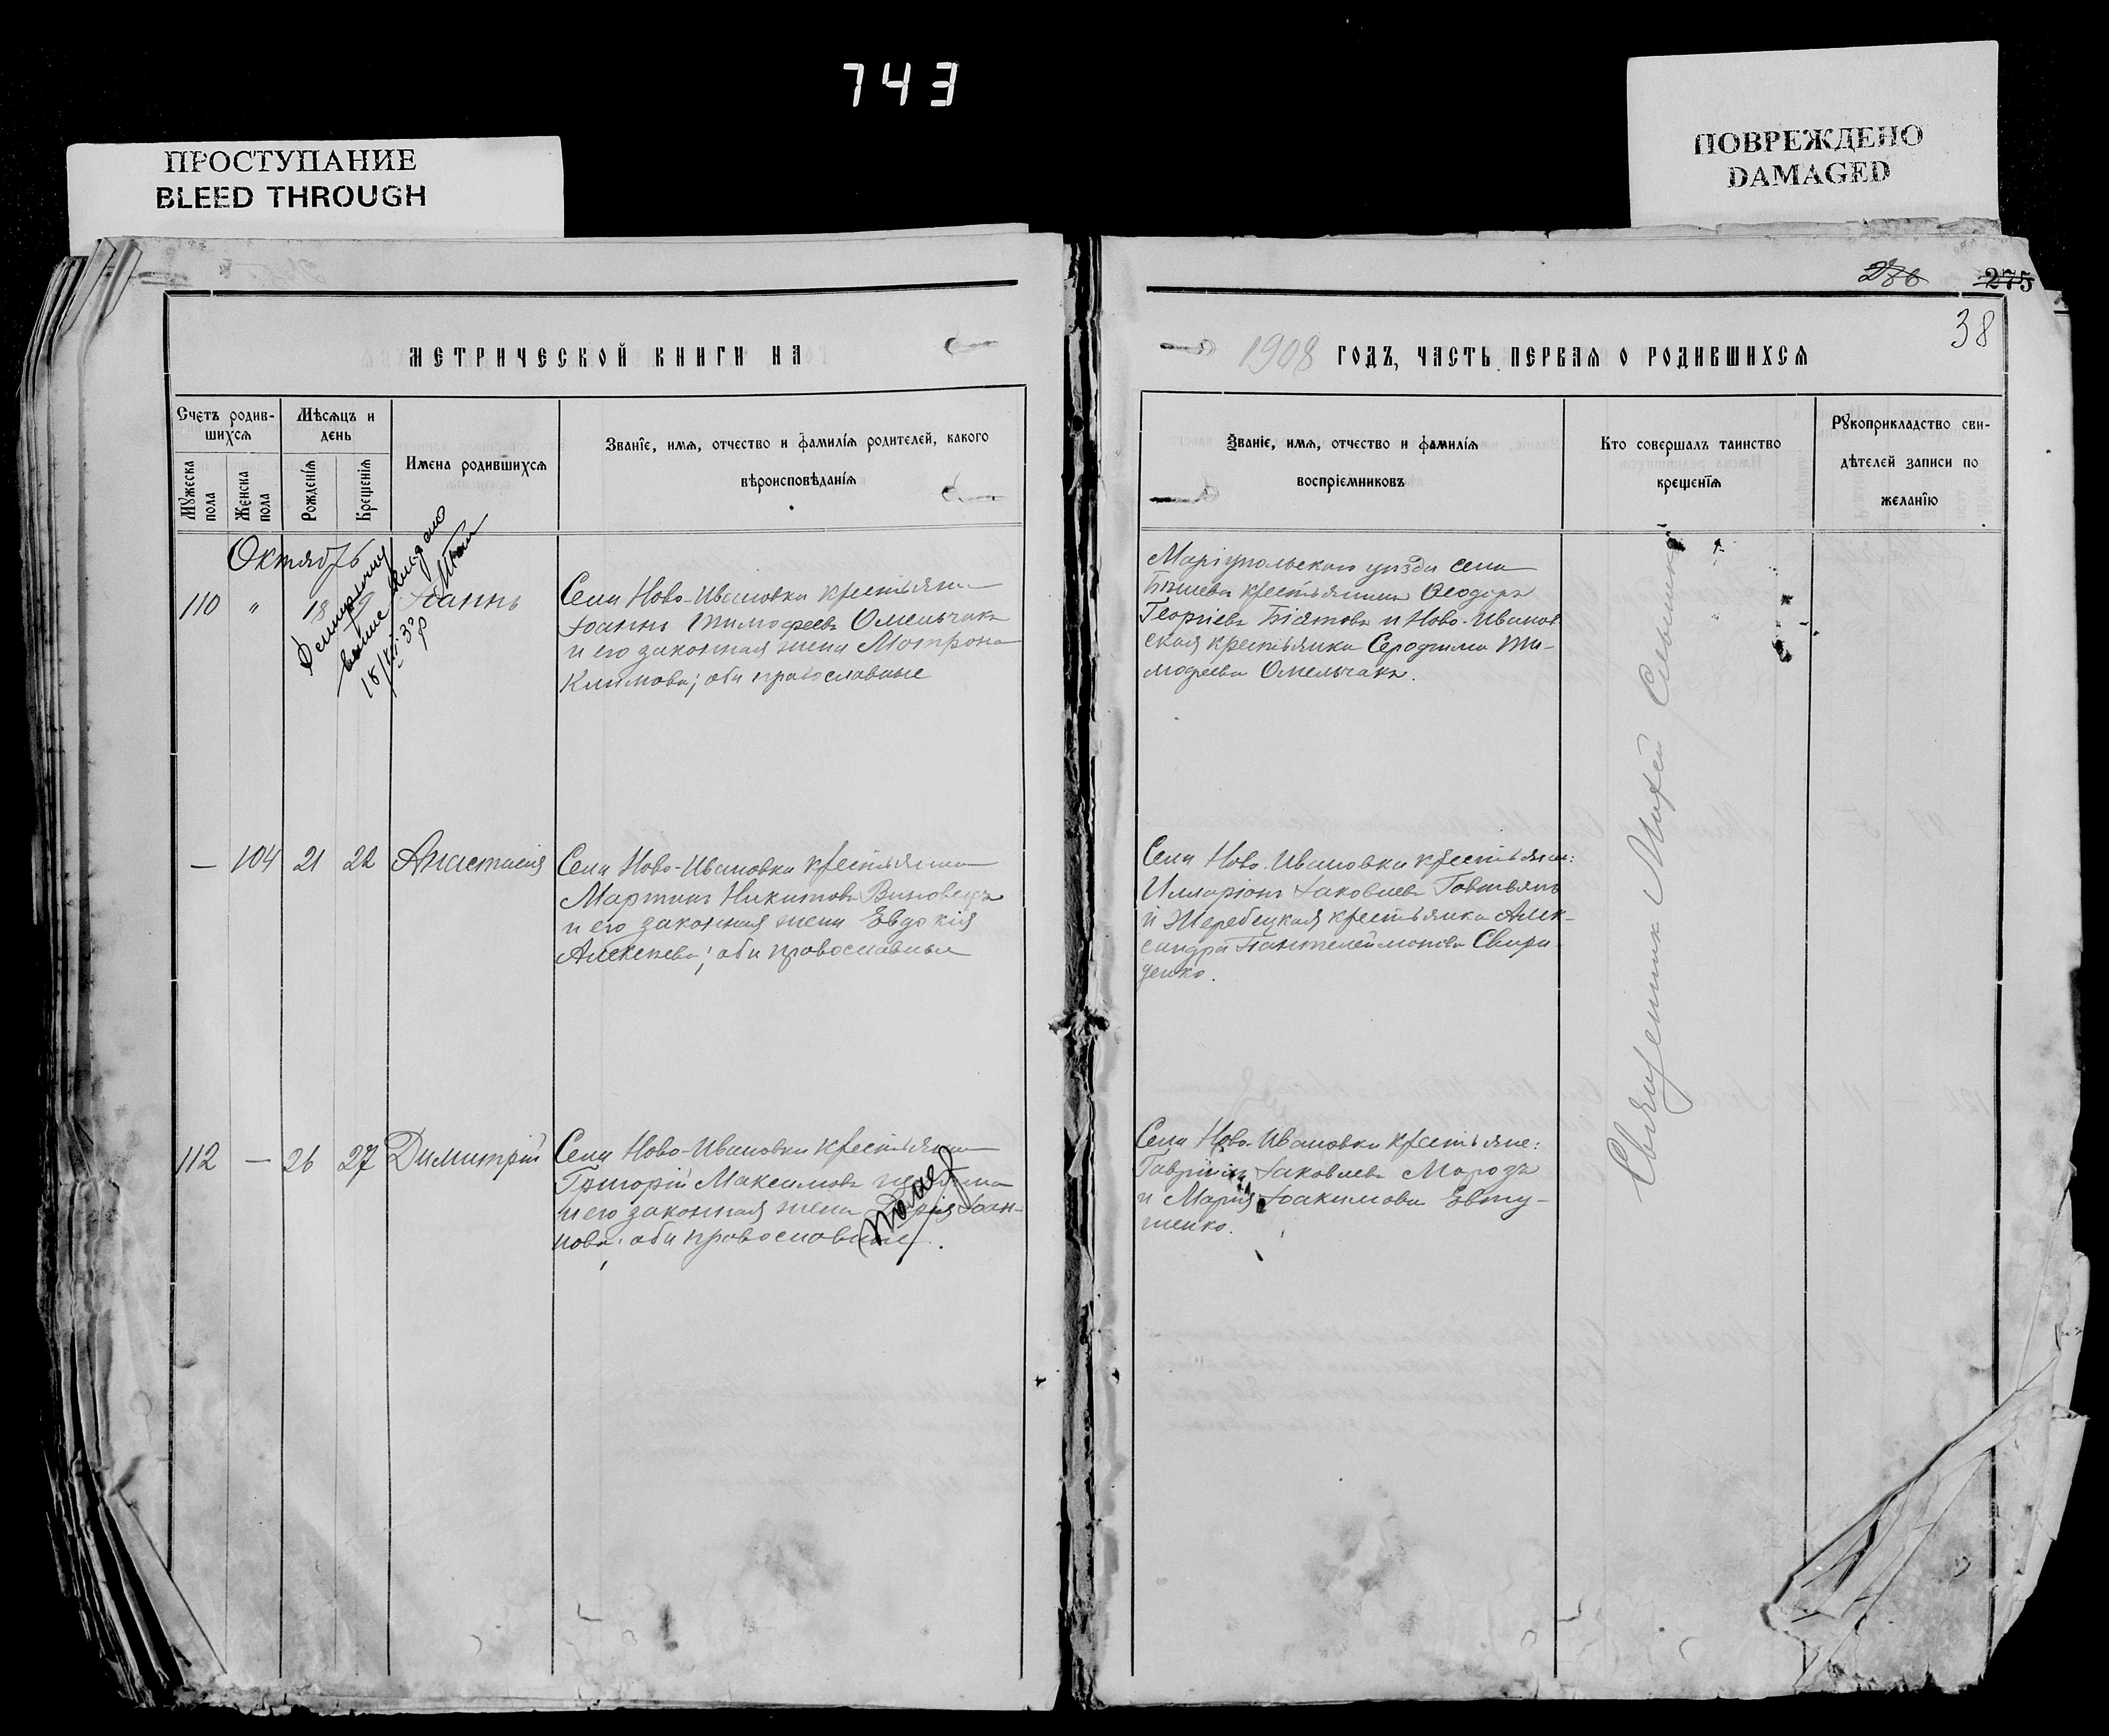 743
ПРОСТУПАНИЕ
BLEED THROUGH
ПОВРЕЖДЕНО
DAMAGED
275
38
МЕТРИЧЕСКОЙ КНИГИ НА
1908 ГОДЪ, ЧАСТЬ ПЕРВАЯ О РОДИВШИХСЯ
Счетъ родив-
шихся
Мужеска
пола
Женска
пола
Мѣсяцъ и
день
Рожденія
Крещенія
Имена родившихся
Званіе, имя, отчество и фамилія родителей, какого
вѣроисповѣданія
Званіе, имя, отчество и фамилія
воспріемниковъ
Кто совершалъ таинство
крещенія
Рукоприкладство сви-
дѣтелей записи по
желанію
Октябрь
110 " 18 19 Іоаннъ
Села Ново-Ивановки крестьянинъ
Іоаннъ Тимофеевъ Омельчакъ
и его законная жена Мотрона
Климова; оба православные
Маріупольскаго уѣзда села
Бѣшева крестьянинъ Ѳеодоръ
Георгіевъ и Ново-Иванов
ская крестьянка Ти-
мофеева Омельчакъ.
— 104 21 22 Анастасія
Села Ново-Ивановки крестьянинъ
Мартинъ Никитовъ Виновецъ
и его законная жена Евдокія
Алексѣева; оба православные
Села Ново-Ивановки крестьян:
Илларіонъ Іаковлевъ
и Жеребецкая крестьянка Алек-
сандра Пантелеимонова Свири-
денко.
112 — 26 27 Димитрій
Села Ново-Ивановки крестьянинъ
Григорій Максимовъ
и его законная жена Іоан-
нова; оба православные.
Села Ново-Ивановки крестьяне:
Гавріилъ Іаковлевъ Морозъ
и Марія Іоакимова Евту-
шенко.
Священникъ Михей